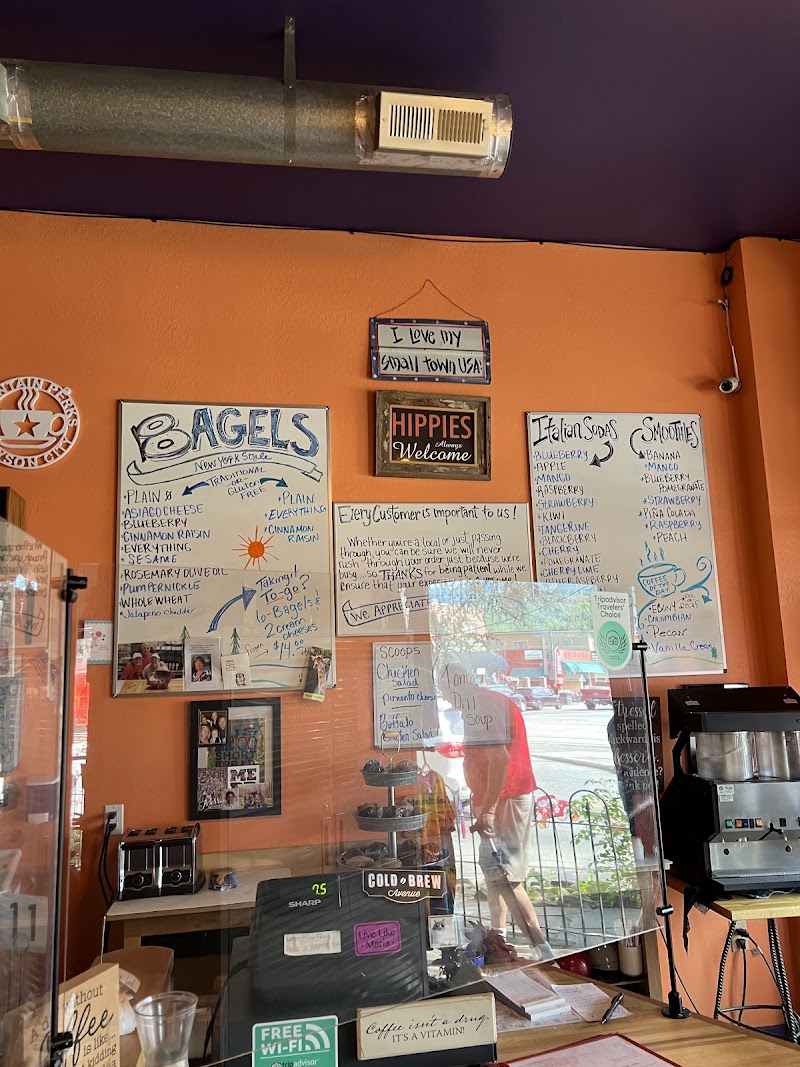 I Love my
small town USA!
HIPPIES
Always
Welcome
BAGELS
New York Style
TRADITIONAL
-OR-
Gluten
FREE
• PLAIN
• ASIAGO CHEESE
• BLUEBERRY
• CINNAMON RAISIN
• EVERYTHING
• SESAME
• ROSEMARY OLIVE OIL
• PUMPERNICKLE
• WHOLE WHEAT
• Jalapeno Cheddar
• PLAIN
• EVERYTHING
• CINNAMON
RAISIN
Taking it
To-go?
6-Bagels &
2 cream
cheeses
$14.00
Every Customer is important to us!
Whether you're a local or just passing
through, you can be sure we will never
rush through your order just because were
busy....so THANKS for being patient while we
ensure that
WE APPRECIATE
Italian Sodas
• BLUEBERRY
• APPLE
• MANGO
• RASPBERRY
• STRAWBERRY
• KIWI
• TANGERINE
• BLACKBERRY
• CHERRY
• POMEGRANATE
• CHERRY LIME
SMOOTHIES
• BANANA
• MANGO
• BLUEBERRY
POMEGRANATE
• STRAWBERRY
• PIÑA COLADA
• RASPBERRY
• PEACH
COFFEE
OF THE
DAY
• EBONY
• COLOMBIAN
• Pecan
• Vanilla Cream
SCOOPS
Chicken
Salad
Pimento Cheese
Buffalo
Chicken Salad
Tomato
Dill
Soup
Tripadvisor
Travelers'
Choice
ME
75
SHARP
COLD BREW
Avenue
Live Like
Maria
FREE
Wi-Fi
tripadvisor
Coffee isn't a drug.
IT'S A VITAMIN!
without
Coffee
is like
kidding
11